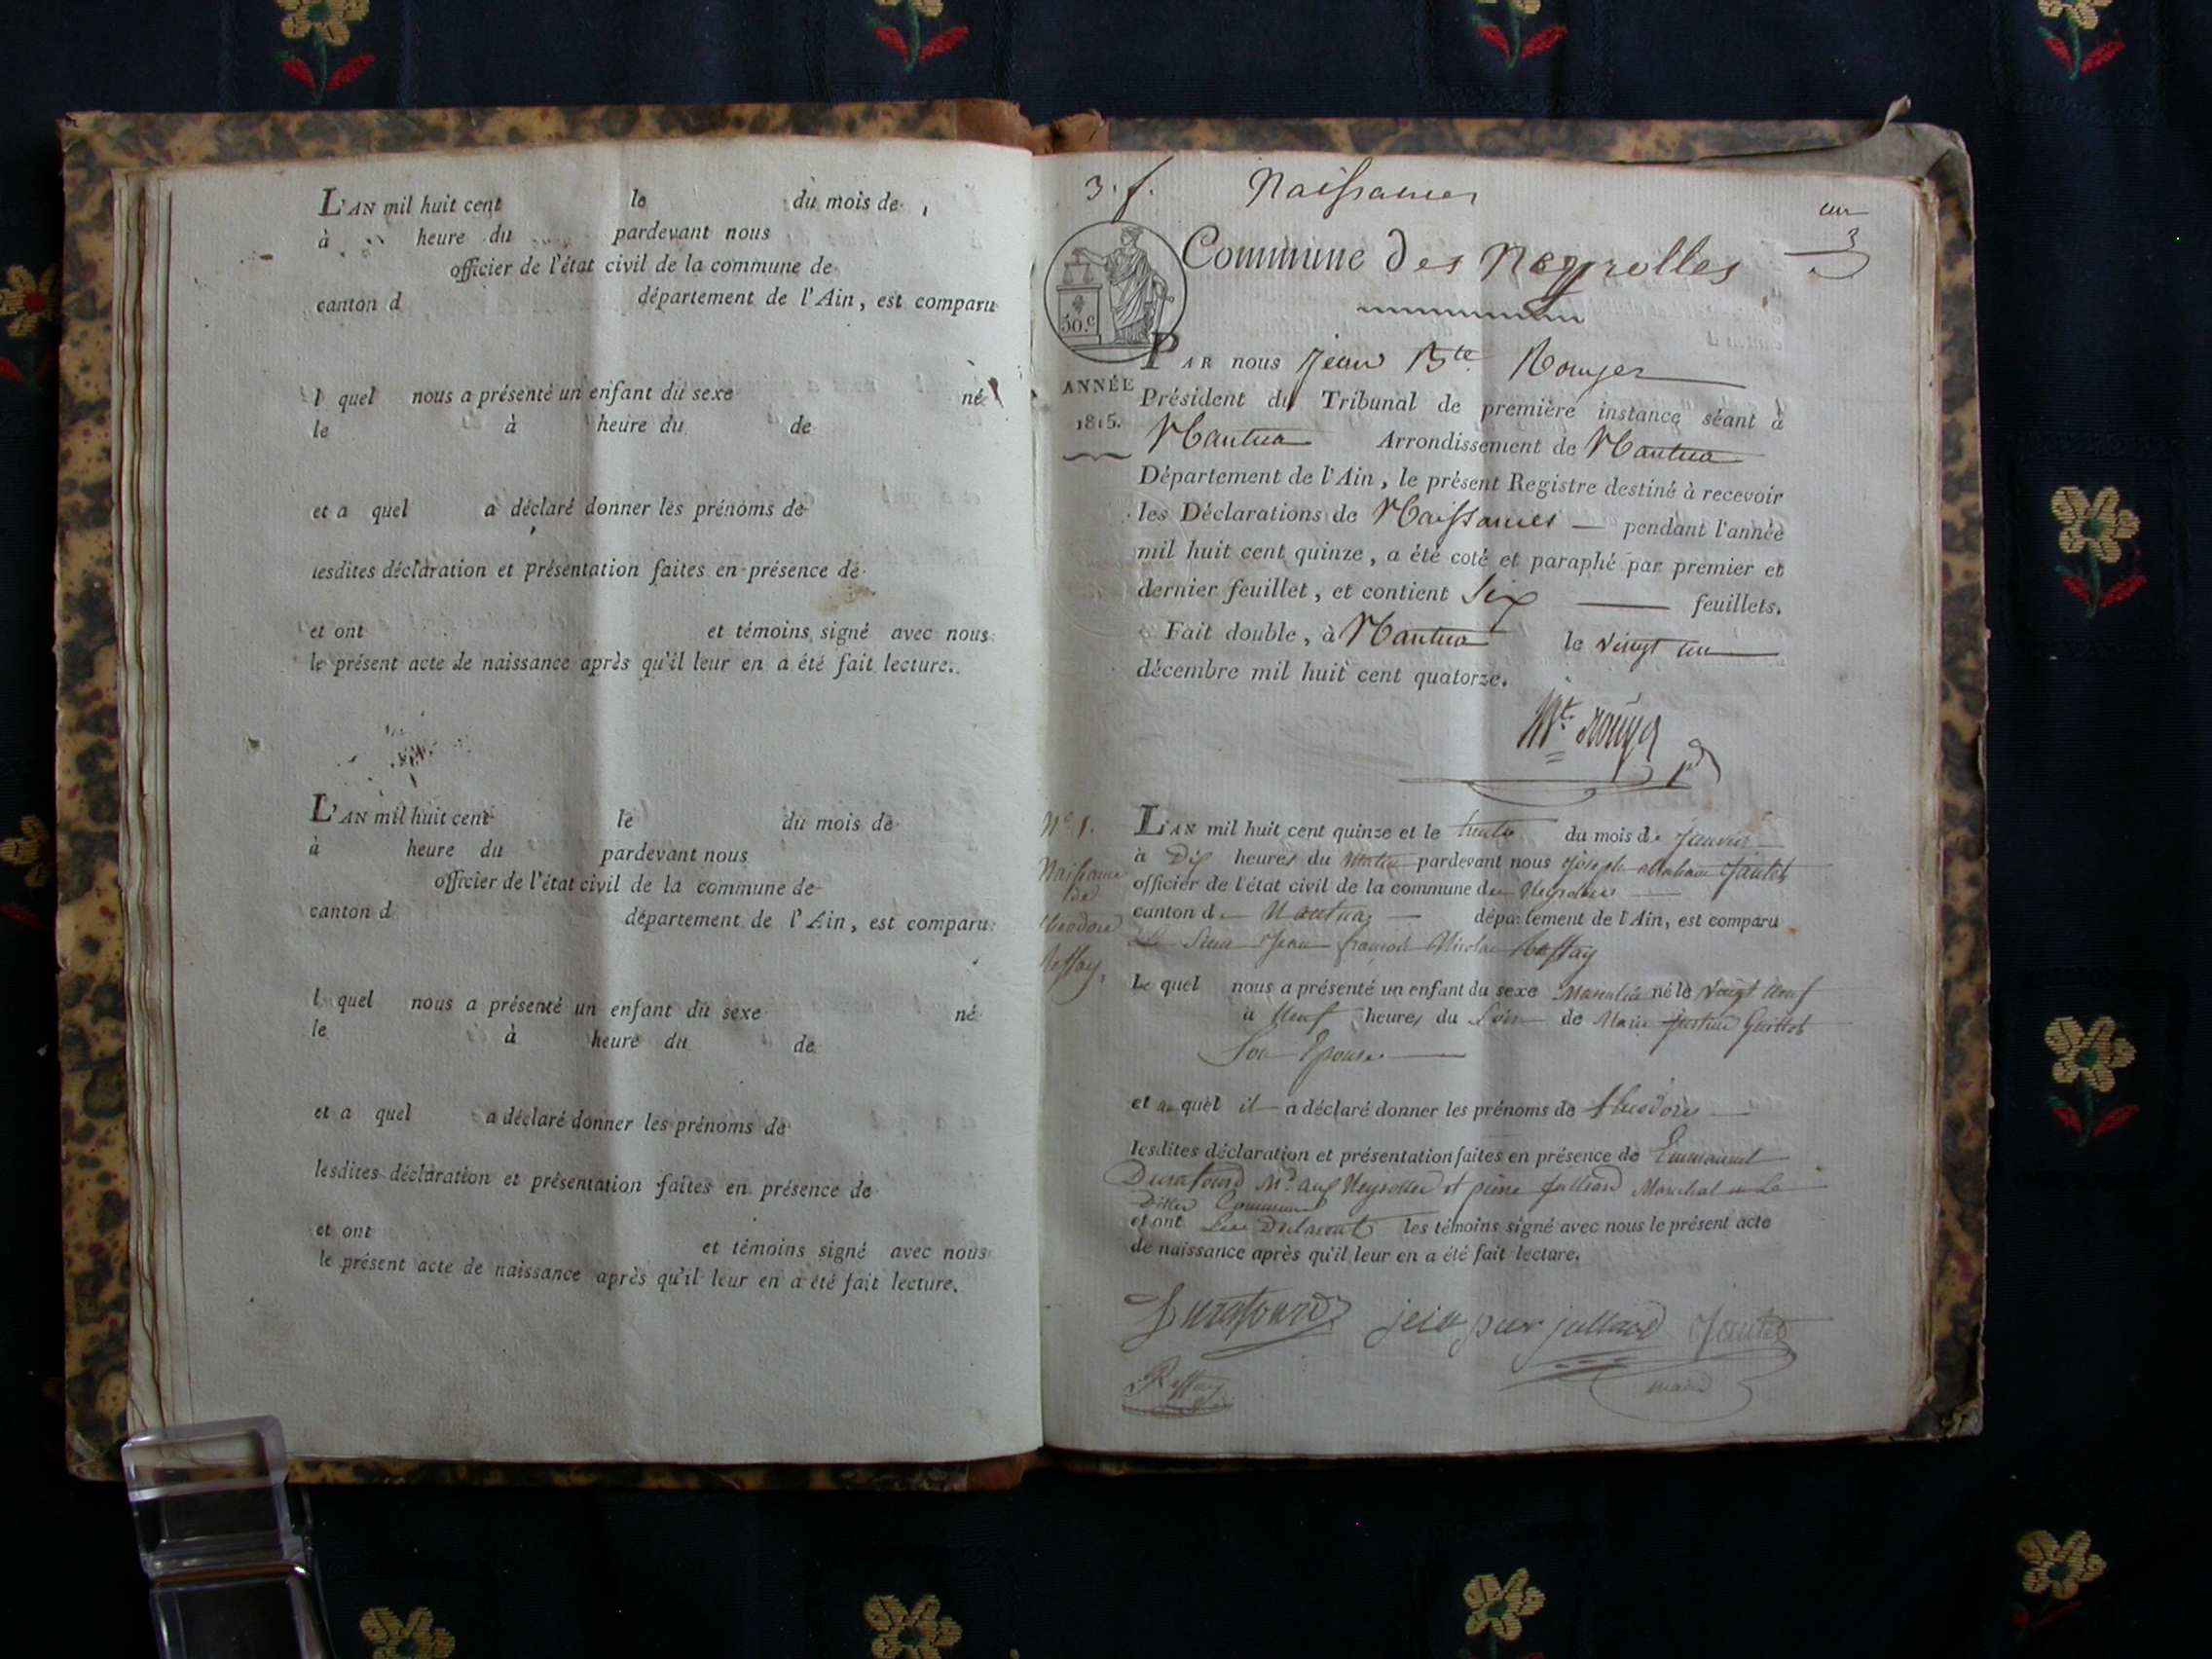 L'AN mil huit cent le du mois de
à heure du pardevant nous
officier de l'état civil de la commune de
canton d département de l'Ain, est comparu
l quel nous a présenté un enfant du sexe né
le à heure du de
et a quel a déclaré donner les prénoms de
lesdites déclaration et présentation faites en présence de
et ont et témoins signé avec nous
le présent acte de naissance après qu'il leur en a été fait lecture.
L'AN mil huit cent le du mois de
à heure du pardevant nous
officier de l'état civil de la commune de
canton d département de l'Ain, est comparu
l quel nous a présenté un enfant du sexe né
le à heure du de
et a quel a déclaré donner les prénoms de
lesdites déclaration et présentation faites en présence de
et ont et témoins signé avec nous
le présent acte de naissance après qu'il leur en a été fait lecture.
3. f. Naissances
un
3
Commune des Neyrolles
50.c
PAR nous Jean Bte Rouyer
ANNÉE
1815.
Président du Tribunal de première instance séant à
Nantua Arrondissement de Nantua
Département de l'Ain, le présent Registre destiné à recevoir
les Déclarations de Naissances pendant l'année
mil huit cent quinze, a été coté et paraphé par premier et
dernier feuillet, et contient Six feuillets.
Fait double, à Nantua le vingt un
décembre mil huit cent quatorze.
N° 1.
Naissance
de
théodore
L'AN mil huit cent quinze et le trente du mois de Janvier
à Dix heures du matin pardevant nous joseph abraham Jantet
officier de l'état civil de la commune des Neyrolles
canton de Nantua département de l'Ain, est comparu
Le Sieur Jean françois Nicolas
Le quel nous a présenté un enfant du sexe Masculin né le vingt neuf
à Neuf heures du Soir de Marie justine
Son Epouse
et au quel il a déclaré donner les prénoms de théodore
lesdites déclaration et présentation faites en présence de Emmanuel
Durafourd Md aux Neyrolles et pierre julliard Marechal a La
Ditte Commune
et ont les témoins signé avec nous le présent acte
de naissance après qu'il leur en a été fait lecture.
Durafourd julliard Jantet
maire